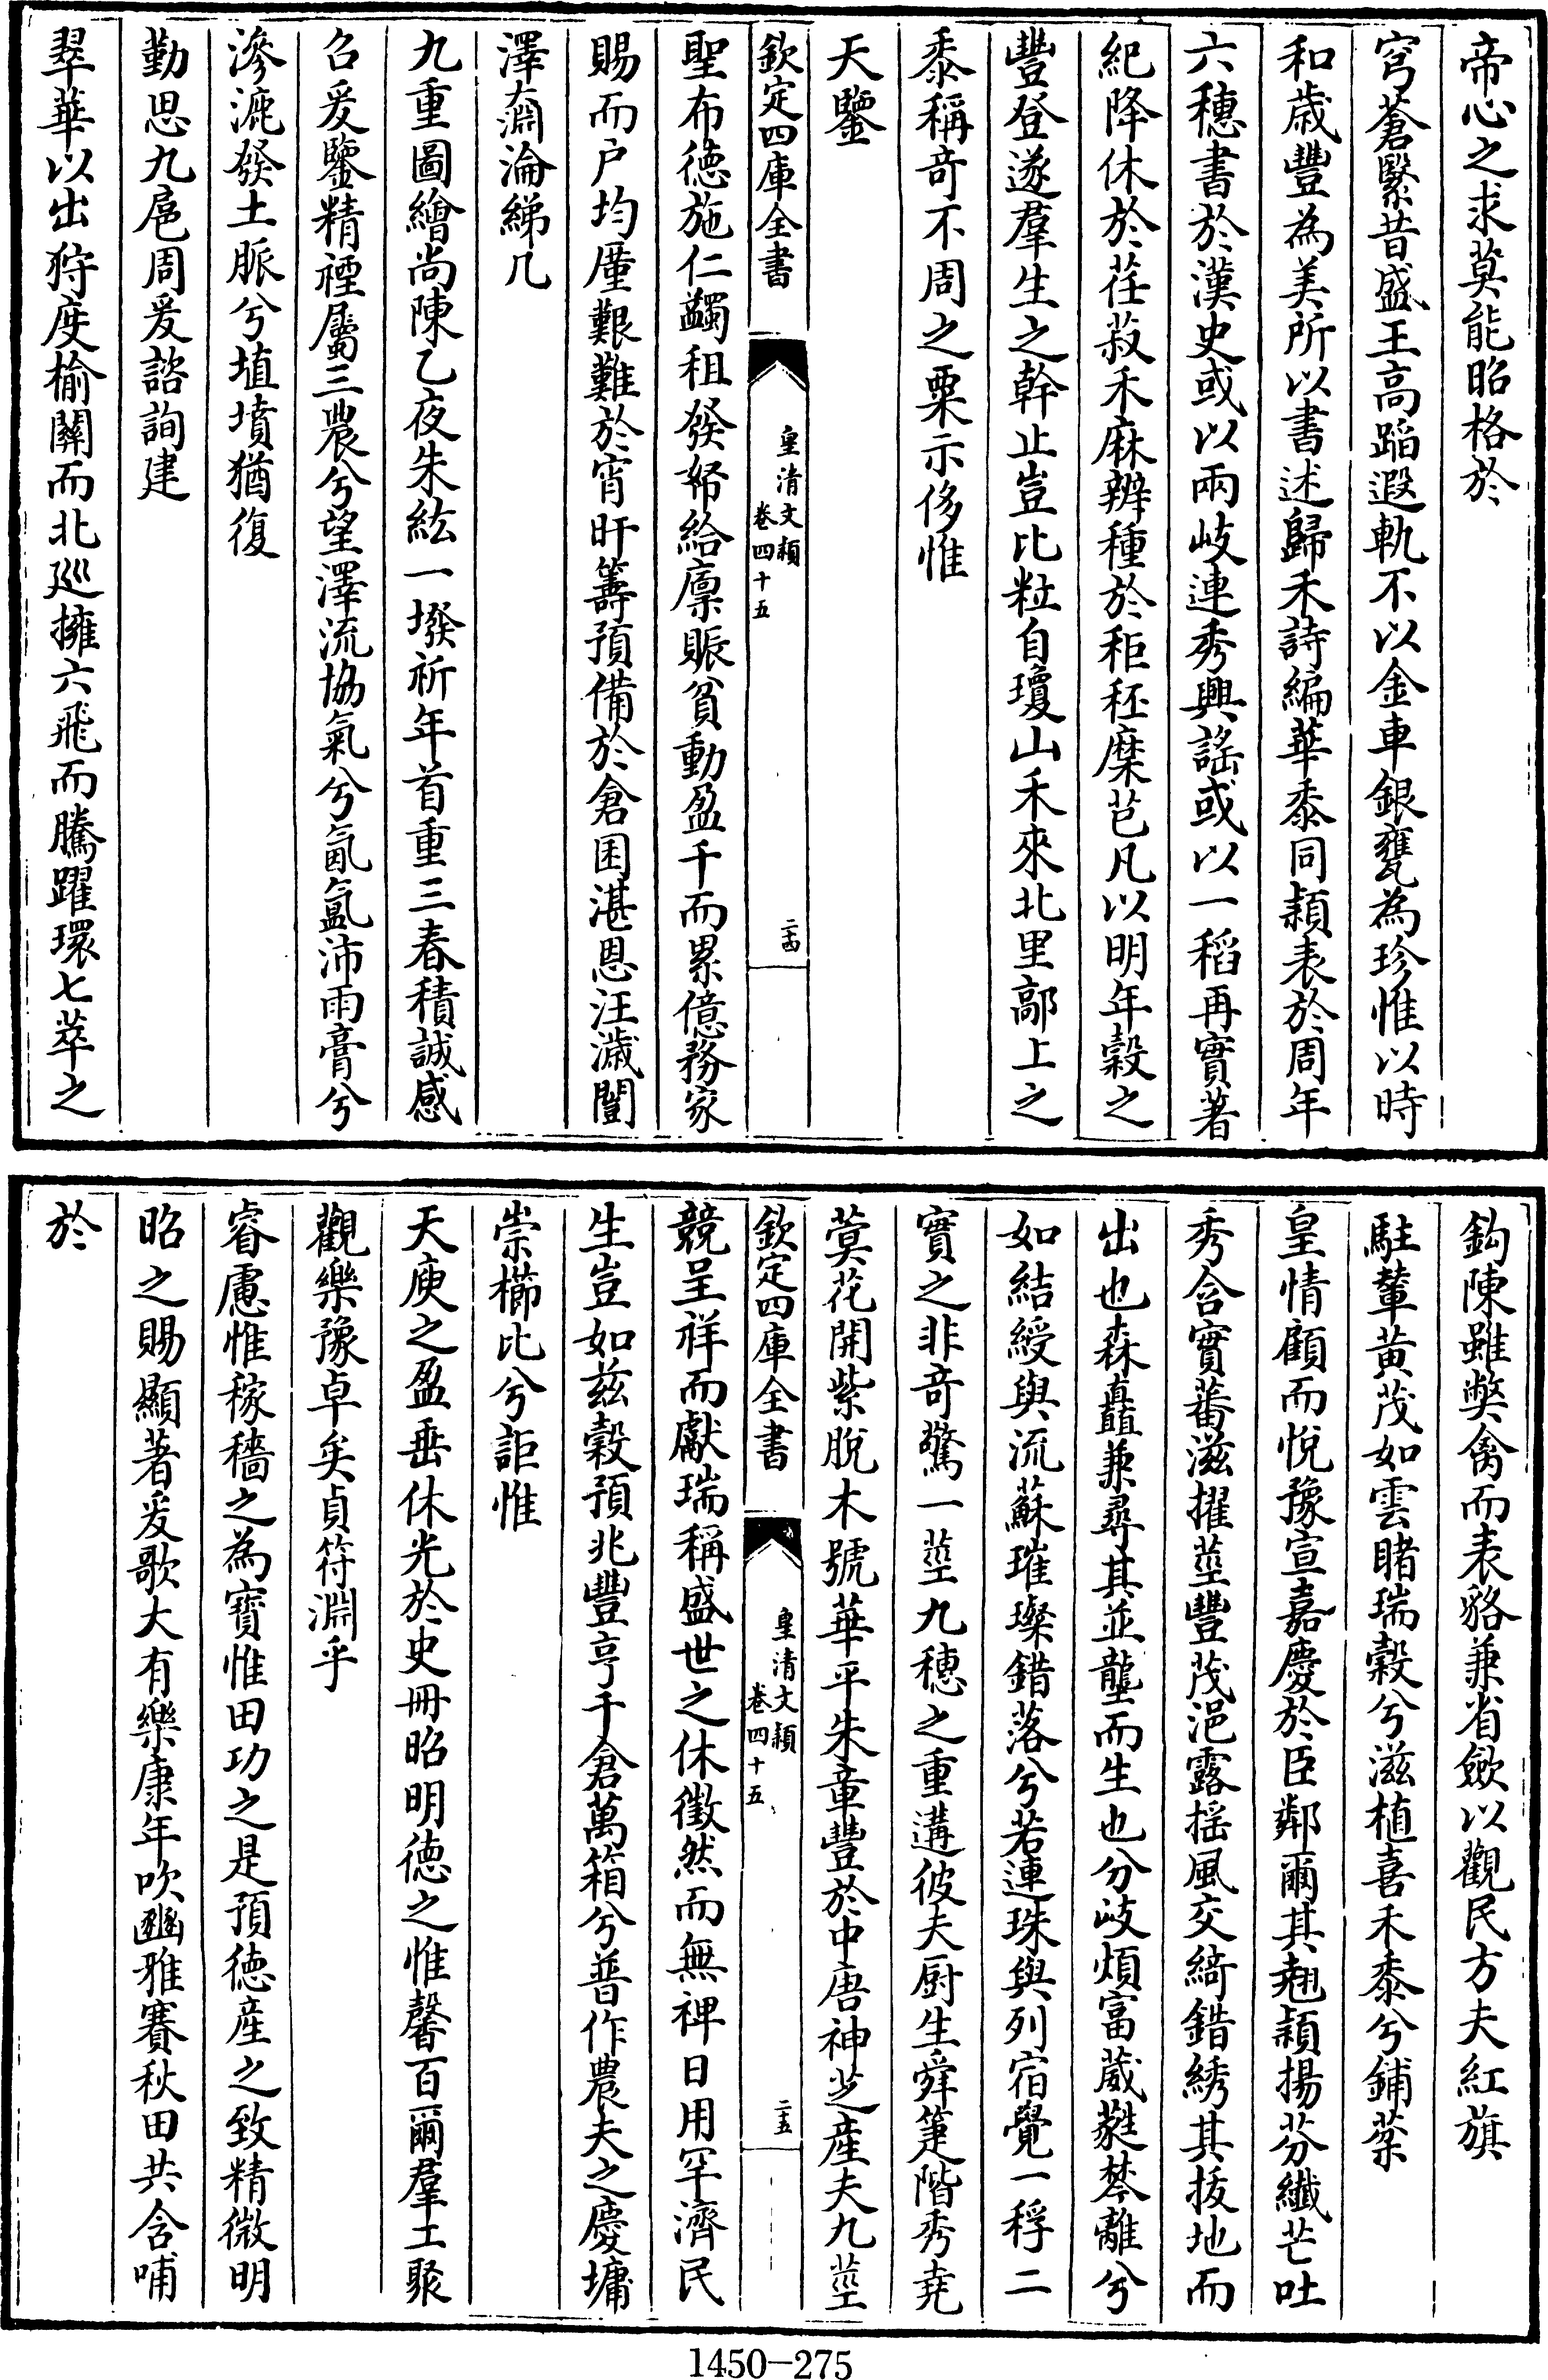 帝心之求莫能昭格於
穹蒼緊昔盛王高蹈遐軌不以金車銀甕為珍惟以時
和歲豐為美所以書述歸禾詩編華黍同穎表於周年
六穗書於漢史或以兩岐連秀興謠或以一稻再實著
紀降休於荏菽禾麻辨種於秬秠糜芑凡以明年穀之
豐登遂羣生之幹止豈比粒自瓊山禾來北里鄗上之
黍稱奇不周之粟示侈惟
天鑒
欽定四庫全書
皇清文穎
卷四十五
二十四
聖布德施仁蠲租發帑給廩賑貧動盈千而累億務家
賜而户均廑艱難於宵旰籌預備於倉囷湛恩汪濊闓
澤奫淪綈几
九重圖繪尚陳乙夜朱紘一墢祈年首重三春積誠感
召爰鑒精禋屬三農兮望澤流協氣兮氤氲沛雨膏兮
滲漉發土脈兮埴墳猶復
勤思九扈周爰諮詢建
翠華以出狩度榆關而北廵擁六飛而騰躍環七萃之
鈎陳雖獘禽而表貉兼省斂以觀民方夫紅旗
駐輦黃茂如雲睹瑞穀兮滋植喜禾黍兮鋪棻
皇情顧而悅豫宣嘉慶於臣鄰爾其翹穎揚芬纖芒吐
秀含實蕃滋擢莖豐茂浥露揺風交綺錯綉其拔地而
出也森矗兼尋其並蘢而生也分岐煩富葳蕤棽離兮
如結綬與流蘇璀璨錯落兮若連珠與列宿覺一稃二
實之非奇驚一莖九穗之重遘彼夫厨生舜箑階秀堯
蓂花開紫脫木號華平朱章豐於中唐神芝産夫九莖
欽定四庫全書
皇清文穎
卷四十五
二十五
競呈祥而獻瑞稱盛世之休徵然而無裨日用罕濟民
生豈如兹穀預兆豐亨千倉萬箱兮普作農夫之慶墉
崇櫛比兮詎惟
天庾之盈垂休光於史冊昭明德之惟馨百爾羣工聚
觀樂豫卓矣貞符淵乎
睿慮惟稼穡之為寳惟田功之是預德産之致精微明
昭之賜顯著爰歌大有樂康年吹豳雅賽秋田共含哺
於
1450-275